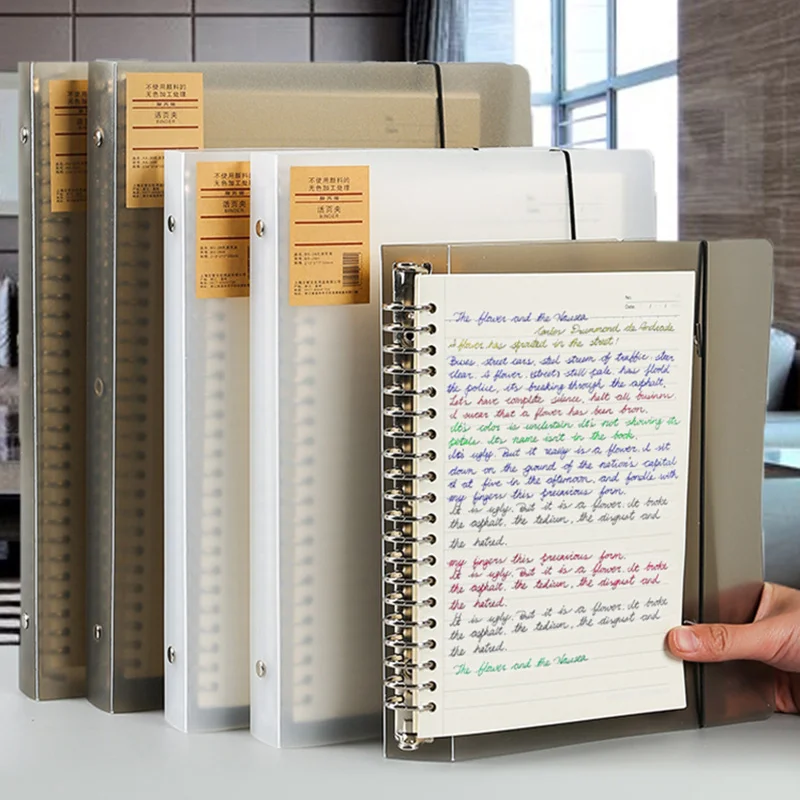 不使用颜料的
无色加工处理
活页夹
BINDER
不使用颜料的
无色加工处理
活页夹
BINDER
不使用颜料的
无色加工处理
活页夹
BINDER
No.
Date.
The flower and the Nausea
Carlos Drummond de Andrade
A flower has sprouted in the street!
Buses, street cars, steel stream of traffic: steer
clear. A flower, still pale, has
the police, it's breaking through the asphalt,
Let's have complete silence, halt all business,
I swear that a flower has been born.
It's color is uncertain it's not showing its
petals. It's name isn't in the book.
It's ugly. But it really is a flower. I sit
down on the ground of the nation's capital
at five in the afternoon, and fondle with
my fingers this precarious form.
It is ugly. But it is a flower. It broke
the asphalt, the tedium, the disgust and
the hatred.
my fingers this precarious form.
It is ugly. But it is a flower. It broke
the asphalt, the tedium, the disgust and
the hatred.
It is ugly. But it is a flower. It broke
the asphalt, the tedium, the disgust and
the hatred.
The flower and the Nausea